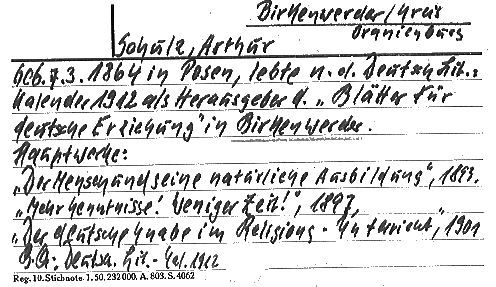 Birkenwerder/Kreis
Oranienburg
Schulz, Arthur
Geb. 7.3. 1864 in Posen, lebte n. d. Deutsch. Lit.-
Kalender 1912 als Herausgeber d. „Blätter für
deutsche Erziehung" in Birkenwerder.
Hauptwerke:
„Der Mensch und seine natürliche Ausbildung", 1893.
„Mehr Kenntnisse! Weniger Zeit!", 1897,
„Der deutsche Knabe im Religions-Unterricht", 1901
B.A: Deutsch. Lit.-Kal. 1912
Reg. 10. Stichnote. 1. 50, 232000. A. 803. S. 4062